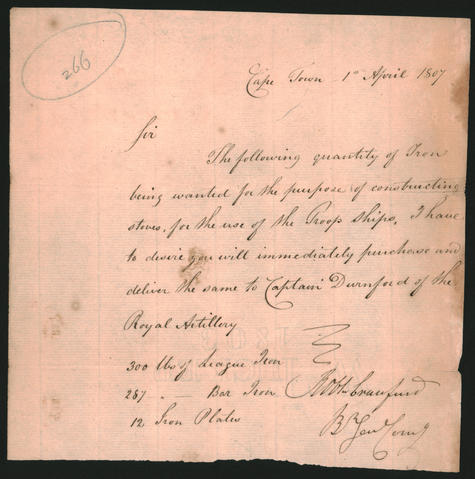 266
Cape Town 1st April 1807
Sir
The following quantity of Iron
being wanted for the purpose of constructing
stoves, for the use of the Troop Ships, I have
to desire you will immediately purchase and
deliver the same to Captain Durnford of the
Royal Artillery
300 lbs of League Iron
267 . — Bar Iron
12 Iron Plates
Robt Craufurd
B. Genl Comg